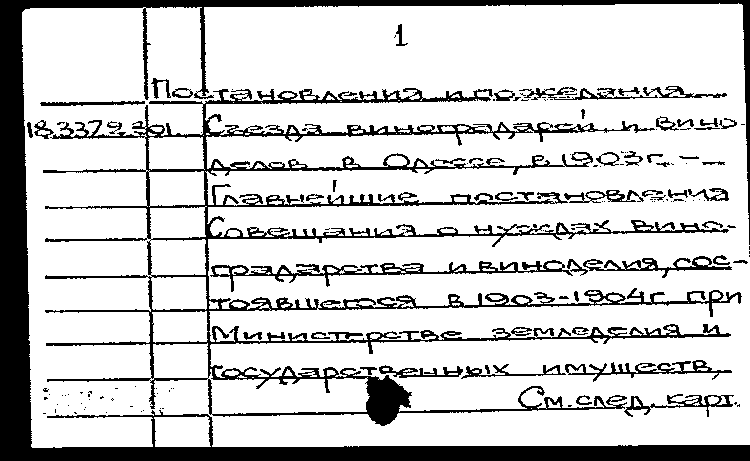 1
Постановления и пожелания
Съезда виноградарей и вино-
делов в Одессе, в 1903 г. –
Главнейшие постановления
Совещания о нуждах вино-
градарства и виноделия, сос-
тоявшегося в 1903-1904 г. при
Министерстве земледелия и
государственных имуществ,
См. след. карт.